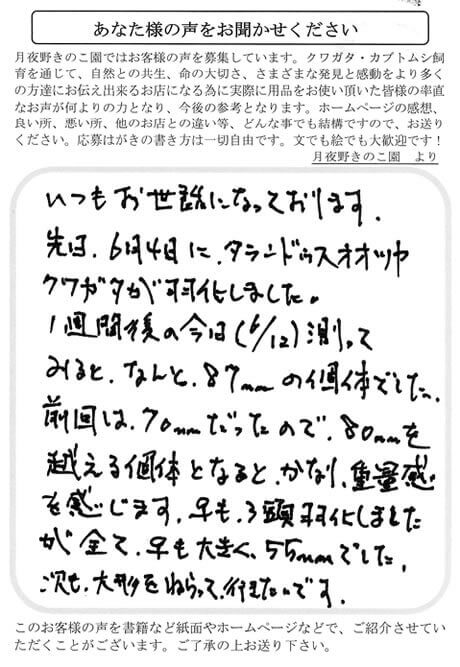 あなた様の声をお聞かせください
月夜野きのこ園ではお客様の声を募集しています。クワガタ・カブトムシ飼
育を通じて、自然との共生、命の大切さ、さまざまな発見と感動をより多く
の方達にお伝え出来るお店になる為に実際に用品をお使い頂いた皆様の率直
なお声が何よりの力となり、今後の参考となります。ホームページの感想、
良い所、悪い所、他のお店との違い等、どんな事でも結構ですので、お送り
ください。応募はがきの書き方は一切自由です。文でも絵でも大歓迎です!
月夜野きのこ園 より
いつもお世話になっております。
先日、6月4日に、タランドゥスオオツヤ
クワガタが羽化しました。
1週間後の今日(6/12)測って
みると、なんと、87mmの個体でした。
前回は、70mmだったので、80mmを
越える個体となると、かなり、重量感
を感じます。♀も、3頭羽化しました
が全て、♀も大きく、55mmでした。
次も、大形をねらって、行きたいです。
このお客様の声を書籍など紙面やホームページなどで、ご紹介させてい
ただくことがございます。ご了承の上お送り下さい。